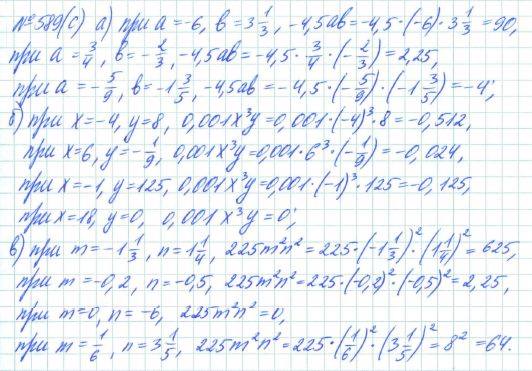 №589(с) а) при а = -6, в = 3 1/3, -4,5ав = -4,5·(-6)·3 1/3 = 90,
при а = 3/4, в = -2/3, -4,5ав = -4,5·3/4·(-2/3) = 2,25,
при а = -5/9, в = -1 3/5, -4,5ав = -4,5·(-5/9)·(-1 3/5) = -4;
б) при х = -4, у = 8, 0,001х³у = 0,001·(-4)³·8 = -0,512,
при х = 6, у = -1/9, 0,001х³у = 0,001·6³·(-1/9) = -0,024,
при х = -1, у = 125, 0,001х³у = 0,001·(-1)³·125 = -0,125,
при х = 18, у = 0, 0,001х³у = 0;
в) при m = -1 1/3, n = 1 1/4, 225m²n² = 225·(-1 1/3)²·(1 1/4)² = 625,
при m = -0,2, n = -0,5, 225m²n² = 225·(-0,2)²·(-0,5)² = 2,25,
при m = 0, n = -6, 225m²n² = 0,
при m = 1/6, n = 3 1/5, 225m²n² = 225·(1/6)²·(3 1/5)² = 8² = 64.